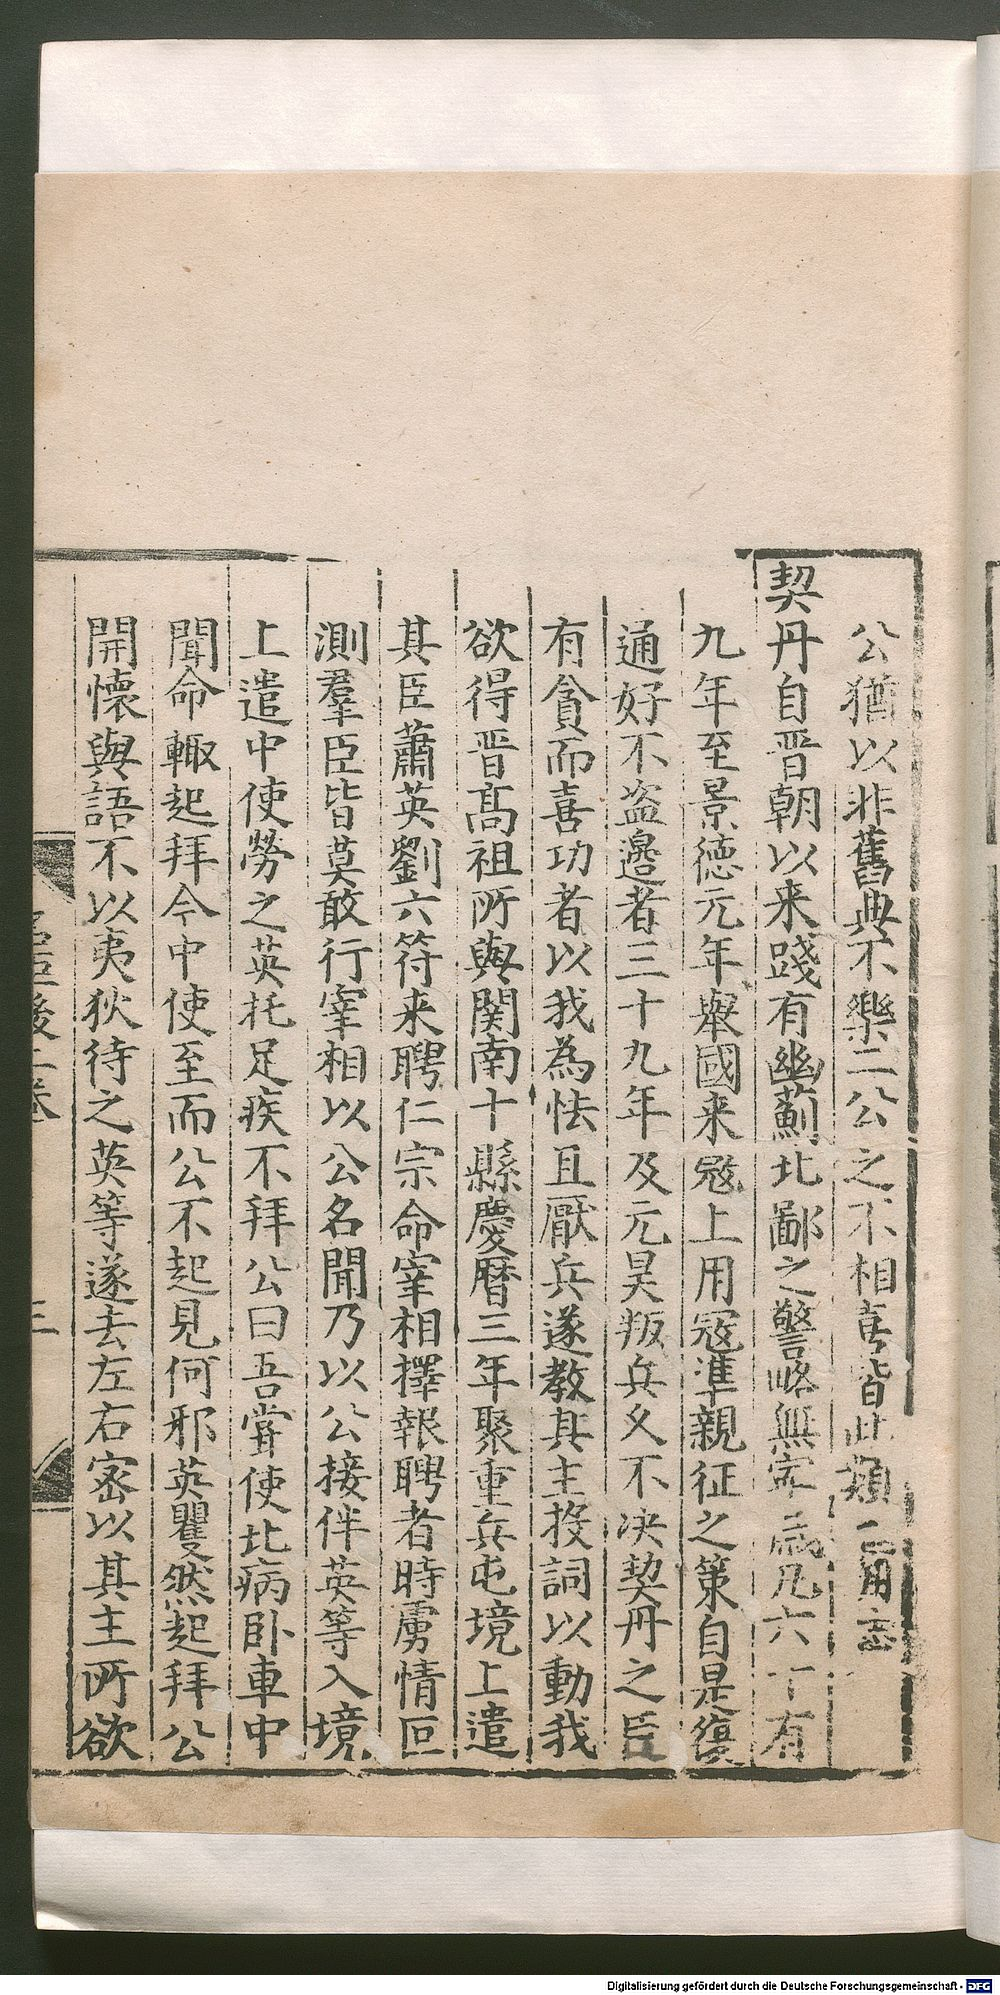 公猶以非舊典不樂二公之不相喜皆此類
契丹自晋朝以来踐有幽薊北鄙之警略無寧歳凡六十有
九年至景德元年舉國来宼上用宼準親征之策自是復
通好不盗邉者三十九年及元昊叛兵乆不决契丹之臣
有貪而喜功者以我為怯且厭兵遂教其主投詞以動我
欲得晋髙祖所與関南十縣慶曆三年聚重兵屯境上遣
其臣蕭英劉六符来聘仁宗命宰相擇報聘者時虜情叵
測羣臣皆莫敢行宰相以公名聞乃以公接伴英等入境
上遣中使勞之英托足疾不拜公曰吾甞使北病卧車中
聞命輙起拜今中使至而公不起見何邪英瞿然起拜公
開懷與語不以夷狄待之英等遂去左右宻以其主所欲
後二卷
三
Digitalisierung gefördert durch die Deutsche Forschungsgemeinschaft - DFG